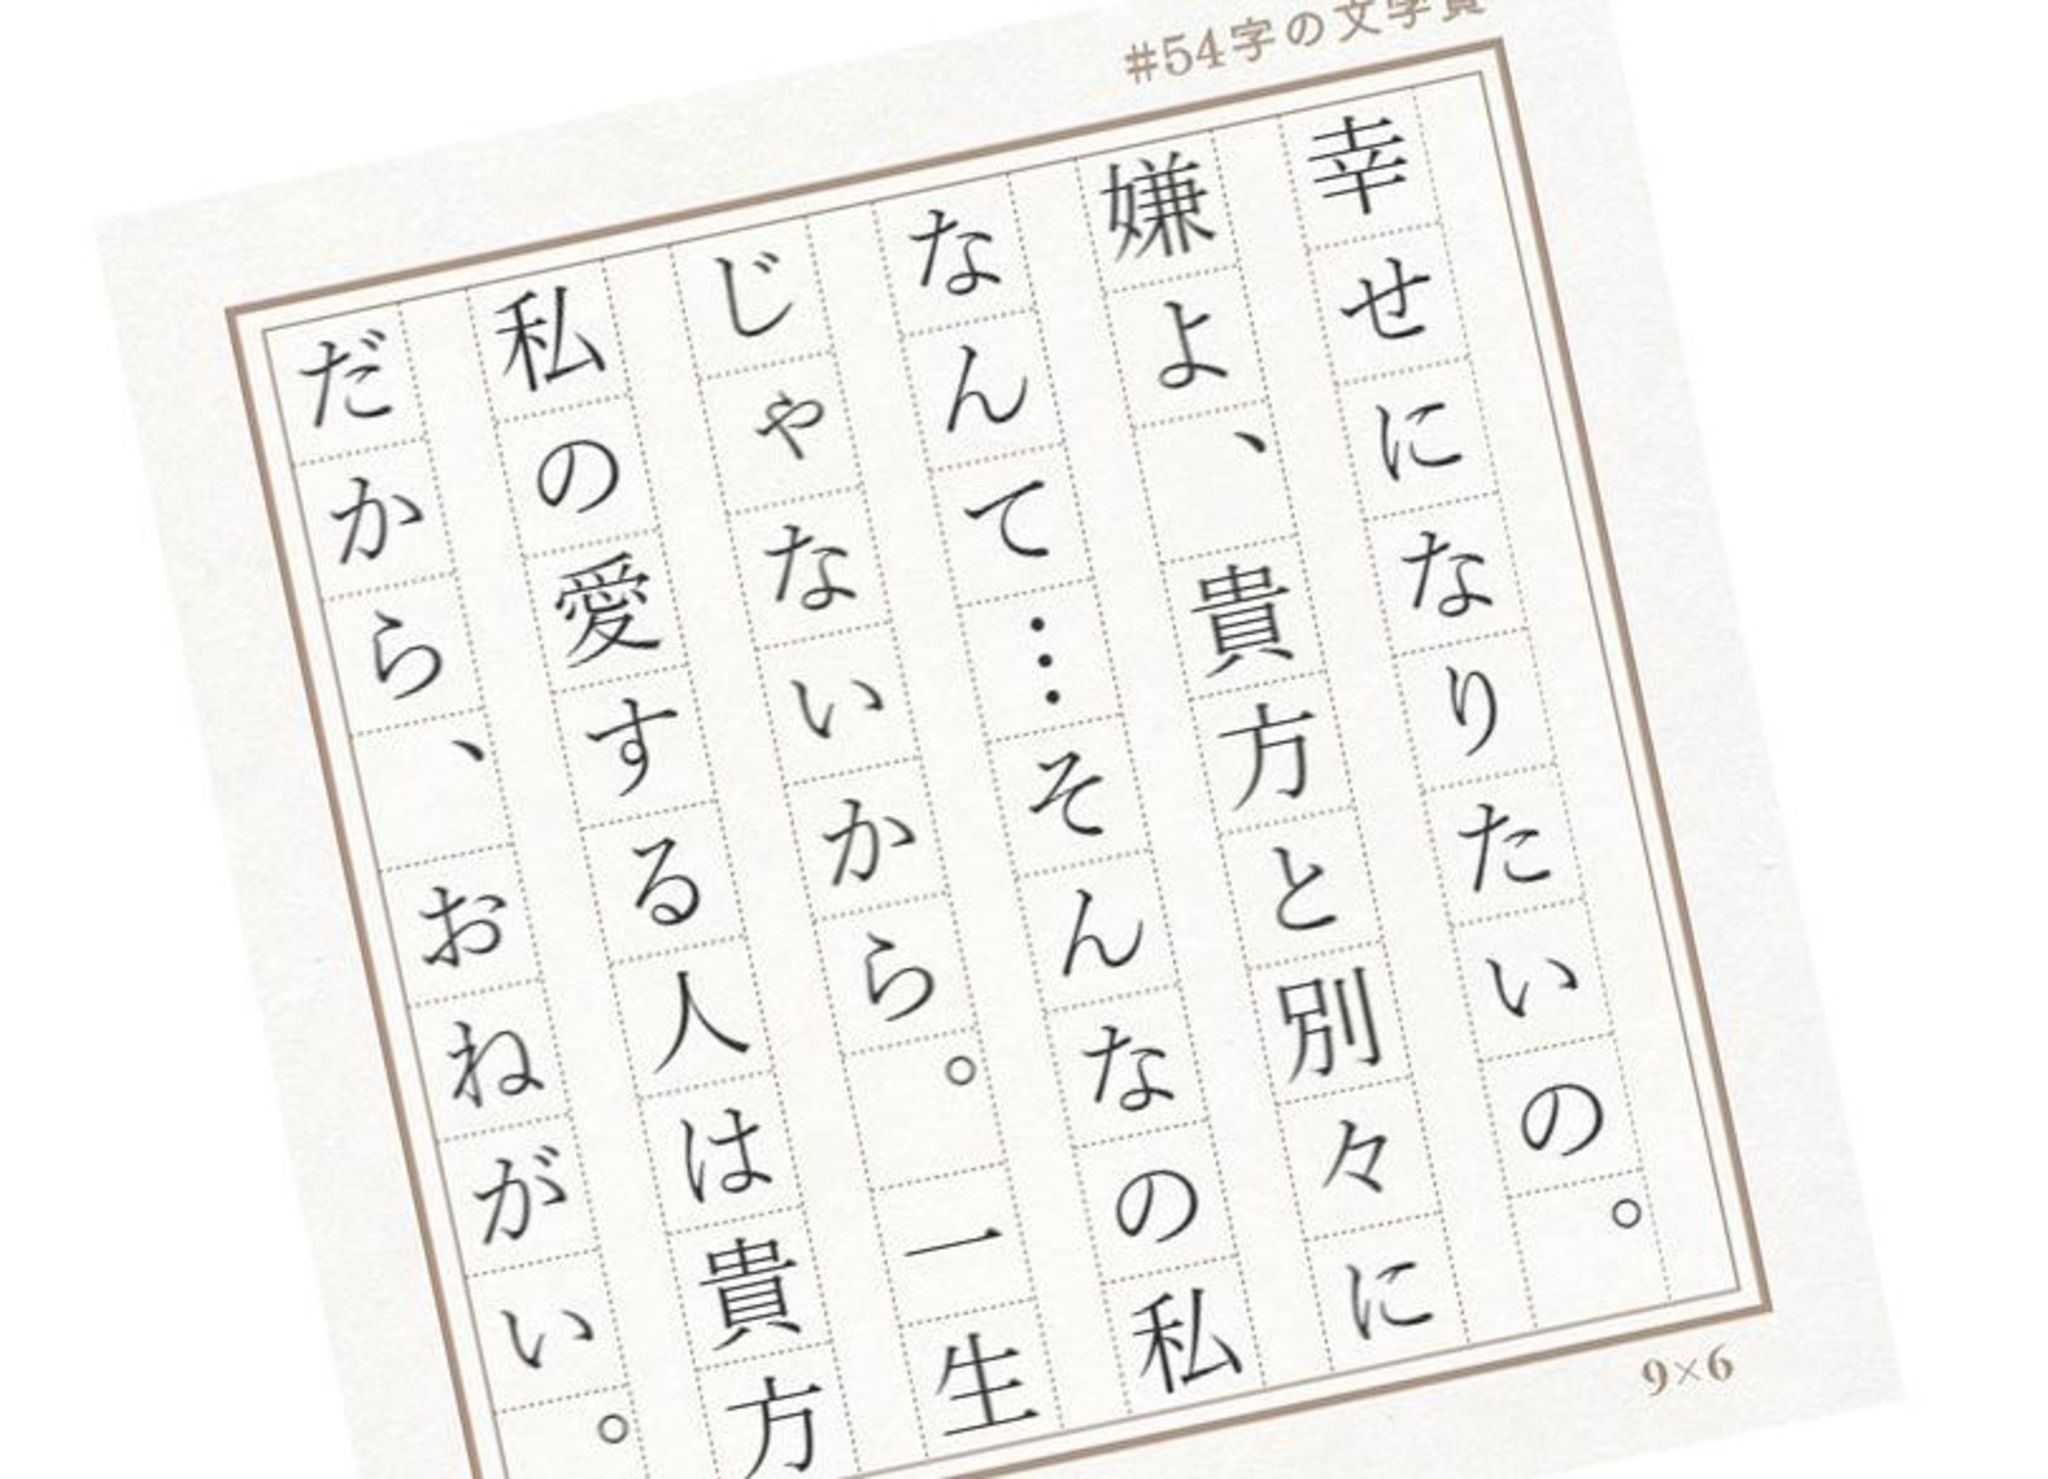 #54字の文学賞
幸せになりたいの。
嫌よ、貴方と別々に
なんて…そんなの私
じゃないから。一生
私の愛する人は貴方
だから、おねがい。
9×6